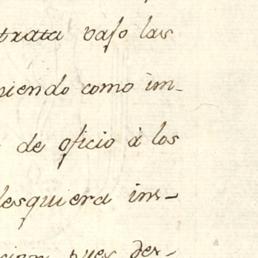 trata vajo las
niendo como im-
de oficio à los
lesquiera ins-
cion pues des-